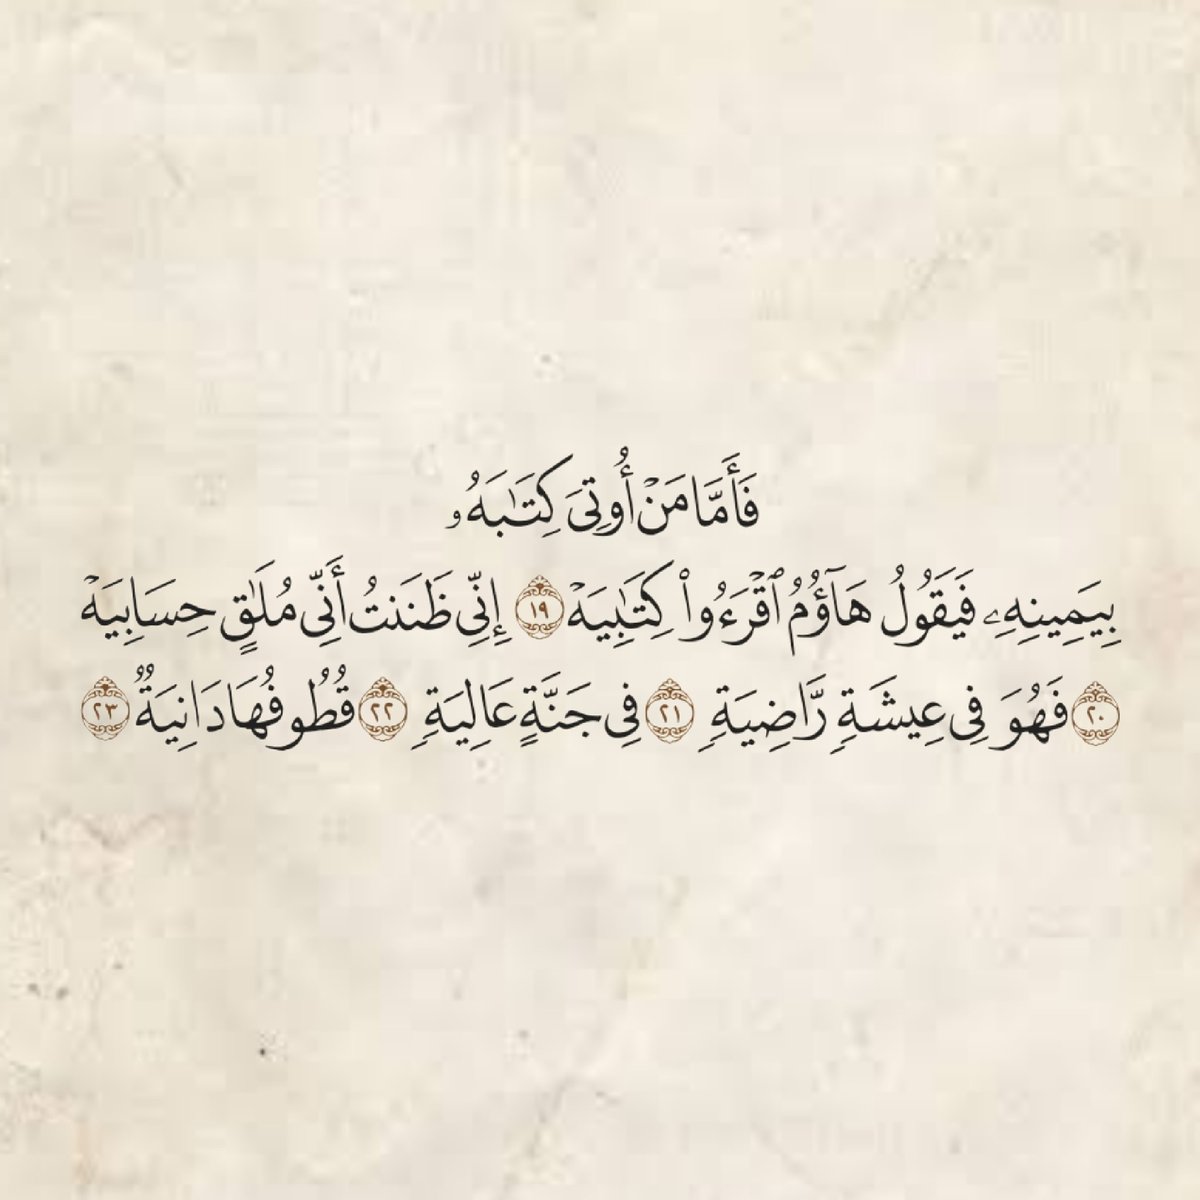 فَأَمَّا مَنْ أُوتِىَ كِتَٰبَهُۥ
بِيَمِينِهِۦ فَيَقُولُ هَآؤُمُ ٱقْرَءُوا۟ كِتَٰبِيَهْ ١٩ إِنِّى ظَنَنتُ أَنِّى مُلَٰقٍ حِسَابِيَهْ
٢٠ فَهُوَ فِى عِيشَةٍ رَّاضِيَةٍ ٢١ فِى جَنَّةٍ عَالِيَةٍ ٢٢ قُطُوفُهَا دَانِيَةٌ ٢٣